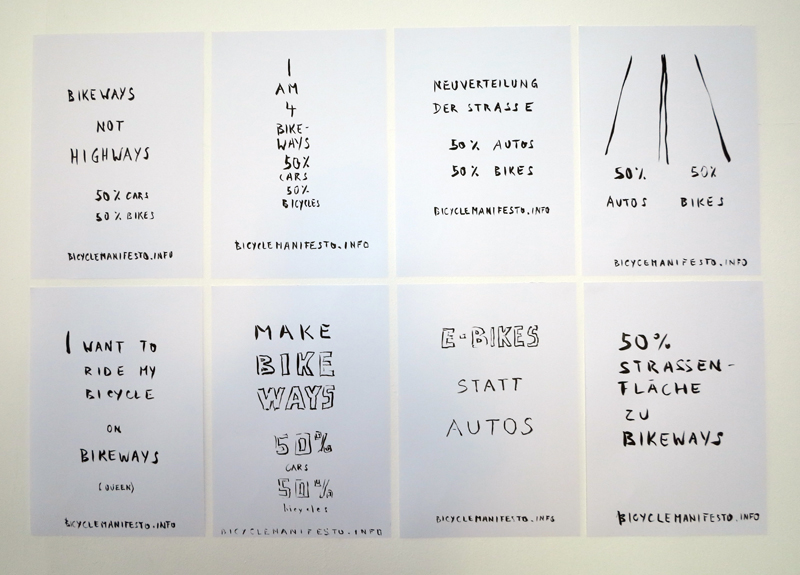 BIKEWAYS
NOT
HIGHWAYS
50% CARS
50% BIKES
BICYCLEMANIFESTO.INFO
I
AM
4
BIKE-
WAYS
50%
CARS
50%
BICYCLES
BICYCLEMANIFESTO.INFO
NEUVERTEILUNG
DER STRASSE
50% AUTOS
50% BIKES
BICYCLEMANIFESTO.INFO
50% 50%
AUTOS BIKES
BICYCLEMANIFESTO.INFO
I WANT TO
RIDE MY
BICYCLE
ON
BIKEWAYS
(QUEEN)
BICYCLEMANIFESTO.INFO
MAKE
BIKE
WAYS
50%
CARS
50%
bicycles
BICYCLEMANIFESTO.INFO
E-BIKES
STATT
AUTOS
BICYCLEMANIFESTO.INFO
50%
STRASSEN-
FLÄCHE
ZU
BIKEWAYS
BICYCLEMANIFESTO.INFO